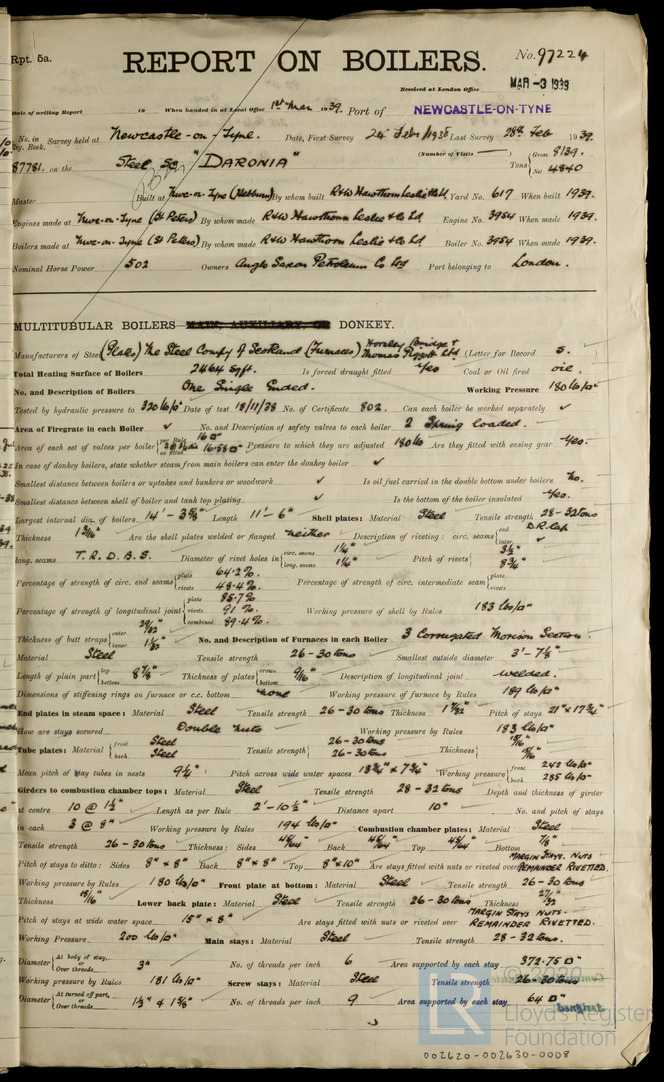 Rpt. 5a.
REPORT ON BOILERS.
No. 97224
Received at London Office
MAR -3 1939
Date of writing Report 19 When handed in at Local Office 1st Mar 1939. Port of NEWCASTLE-ON-TYNE
No. in Survey held at Newcastle-on-Tyne. Date, First Survey 24 Feb 1938 Last Survey 28th Feb 1939.
Reg. Book.
(Number of Visits —)
87781. on the Steel Sc "DARONIA" Tons { Gross 8139. Net 4840
Master Built at Nwc-on-Tyne (Hebburn) By whom built R&W Hawthorn Leslie & Co Ld Yard No. 617 When built 1939.
Engines made at Nwc-on-Tyne (St Peters) By whom made R&W Hawthorn Leslie & Co Ld Engine No. 3954 When made 1939.
Boilers made at Nwc-on-Tyne (St Peters) By whom made R&W Hawthorn Leslie & Co Ld Boiler No. 3954 When made 1939.
Nominal Horse Power 502 Owners Anglo Saxon Petroleum Co Ltd Port belonging to London.
MULTITUBULAR BOILERS MAIN, AUXILIARY, OR DONKEY.
Manufacturers of Steel (Plates) The Steel Compy of Scotland (Furnaces) Horsley Bridge & Thomas Piggott Ltd (Letter for Record S.)
Total Heating Surface of Boilers 2464 sq ft. Is forced draught fitted Yes Coal or Oil fired oil.
No. and Description of Boilers One Single Ended. Working Pressure 180 lb/□"
Tested by hydraulic pressure to 320 lb/□" Date of test 18/11/38 No. of Certificate 802. Can each boiler be worked separately ✓
Area of Firegrate in each Boiler ✓ No. and Description of safety valves to each boiler 2 Spring loaded.
Area of each set of valves per boiler { per Rule 16 □" as fitted 16.58 □" Pressure to which they are adjusted 180 lb Are they fitted with easing gear Yes.
In case of donkey boilers, state whether steam from main boilers can enter the donkey boiler ✓
Smallest distance between boilers or uptakes and bunkers or woodwork ✓ Is oil fuel carried in the double bottom under boilers No.
Smallest distance between shell of boiler and tank top plating ✓ Is the bottom of the boiler insulated Yes.
Largest internal dia. of boilers 14'-3⅝" Length 11'-6" Shell plates: Material Steel Tensile strength 28-32 tons
Thickness 1 3/16" Are the shell plates welded or flanged neither Description of riveting: circ. seams { end D.R. Lap inter. ✓
long. seams T.R.D.B.S. Diameter of rivet holes in { circ. seams 1¼" long. seams 1¼" Pitch of rivets { 3½" 8¾"
Percentage of strength of circ. end seams { plate 64.2% rivets 48.4% Percentage of strength of circ. intermediate seam { plate rivets
Percentage of strength of longitudinal joint { plate 85.7% rivets 91% combined 89.4% Working pressure of shell by Rules 183 lb/□"
Thickness of butt straps { outer 29/32" inner 1 1/32" No. and Description of Furnaces in each Boiler 3 Corrugated Morison Section.
Material Steel Tensile strength 26-30 tons Smallest outside diameter 3'-7⅛"
Length of plain part { top bottom 8⅞" Thickness of plates { crown bottom 9/16" Description of longitudinal joint welded.
Dimensions of stiffening rings on furnace or c.c. bottom none Working pressure of furnace by Rules 189 lb/□"
End plates in steam space: Material Steel Tensile strength 26-30 tons Thickness 1 7/32" Pitch of stays 21" x 17¾"
How are stays secured Double nuts Working pressure by Rules 183 lb/□"
Tube plates: Material { front Steel back Steel Tensile strength { 26-30 tons 26-30 tons Thickness { 15/16"
Mean pitch of stay tubes in nests 9¼" Pitch across wide water spaces 13¾" x 7¾" Working pressure { front 242 lb/□" back 285 lb/□"
Girders to combustion chamber tops: Material Steel Tensile strength 28-32 tons Depth and thickness of girder
at centre 10 @ 1½" Length as per Rule 2'-10½" Distance apart 10" No. and pitch of stays
in each 3 @ 8" Working pressure by Rules 194 lb/□" Combustion chamber plates: Material Steel
Tensile strength 26-30 tons Thickness: Sides 45/64" Back 45/64" Top 45/64" Bottom ⅞"
Pitch of stays to ditto: Sides 8" x 8" Back 8" x 8" Top 8" x 10" Are stays fitted with nuts or riveted over MARGIN STAYS. NUTS REMAINDER RIVETTED.
Working pressure by Rules 180 lb/□" Front plate at bottom: Material Steel Tensile strength 26-30 tons
Thickness 15/16" Lower back plate: Material Steel Tensile strength 26-30 tons Thickness 27/32"
Pitch of stays at wide water space 15" x 8" Are stays fitted with nuts or riveted over MARGIN STAYS NUTS. REMAINDER RIVETTED.
Working Pressure 200 lb/□" Main stays: Material Steel Tensile strength 28-32 tons.
Diameter { At body of stay, or Over threads 3" No. of threads per inch 6 Area supported by each stay 372.75 □"
Working pressure by Rules 181 lb/□" Screw stays: Material Steel Tensile strength 26-30 tons
Diameter { At turned off part, or Over threads 1½" & 1⅝" No. of threads per inch 9 Area supported by each stay 64 □"
© 2020
LR
Lloyd's Register
Foundation
002620-002630-0008